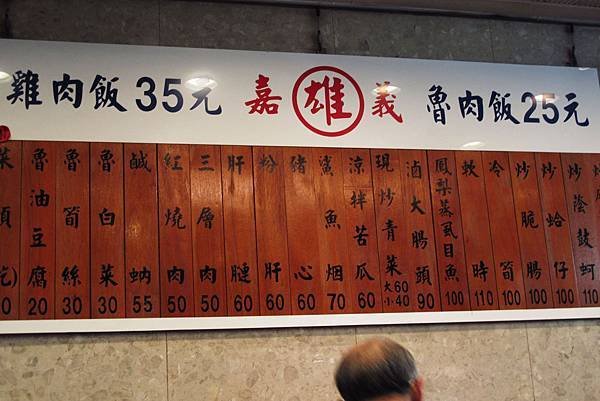 雞肉飯35元 嘉雄義 魯肉飯25元
魯油豆腐 20
魯筍絲 30
魯白菜 30
鹹蚋 55
紅燒肉 50
三層肉 50
肝腱 60
粉肝 60
豬心 60
鯊魚烟 70
涼拌苦瓜 60
現炒青菜 大60 小40
滷大腸頭 90
鳳梨蒸虱目魚 100
時 110
冷筍 100
炒脆腸 100
炒蛤仔 100
炒蔭鼓蚵 110